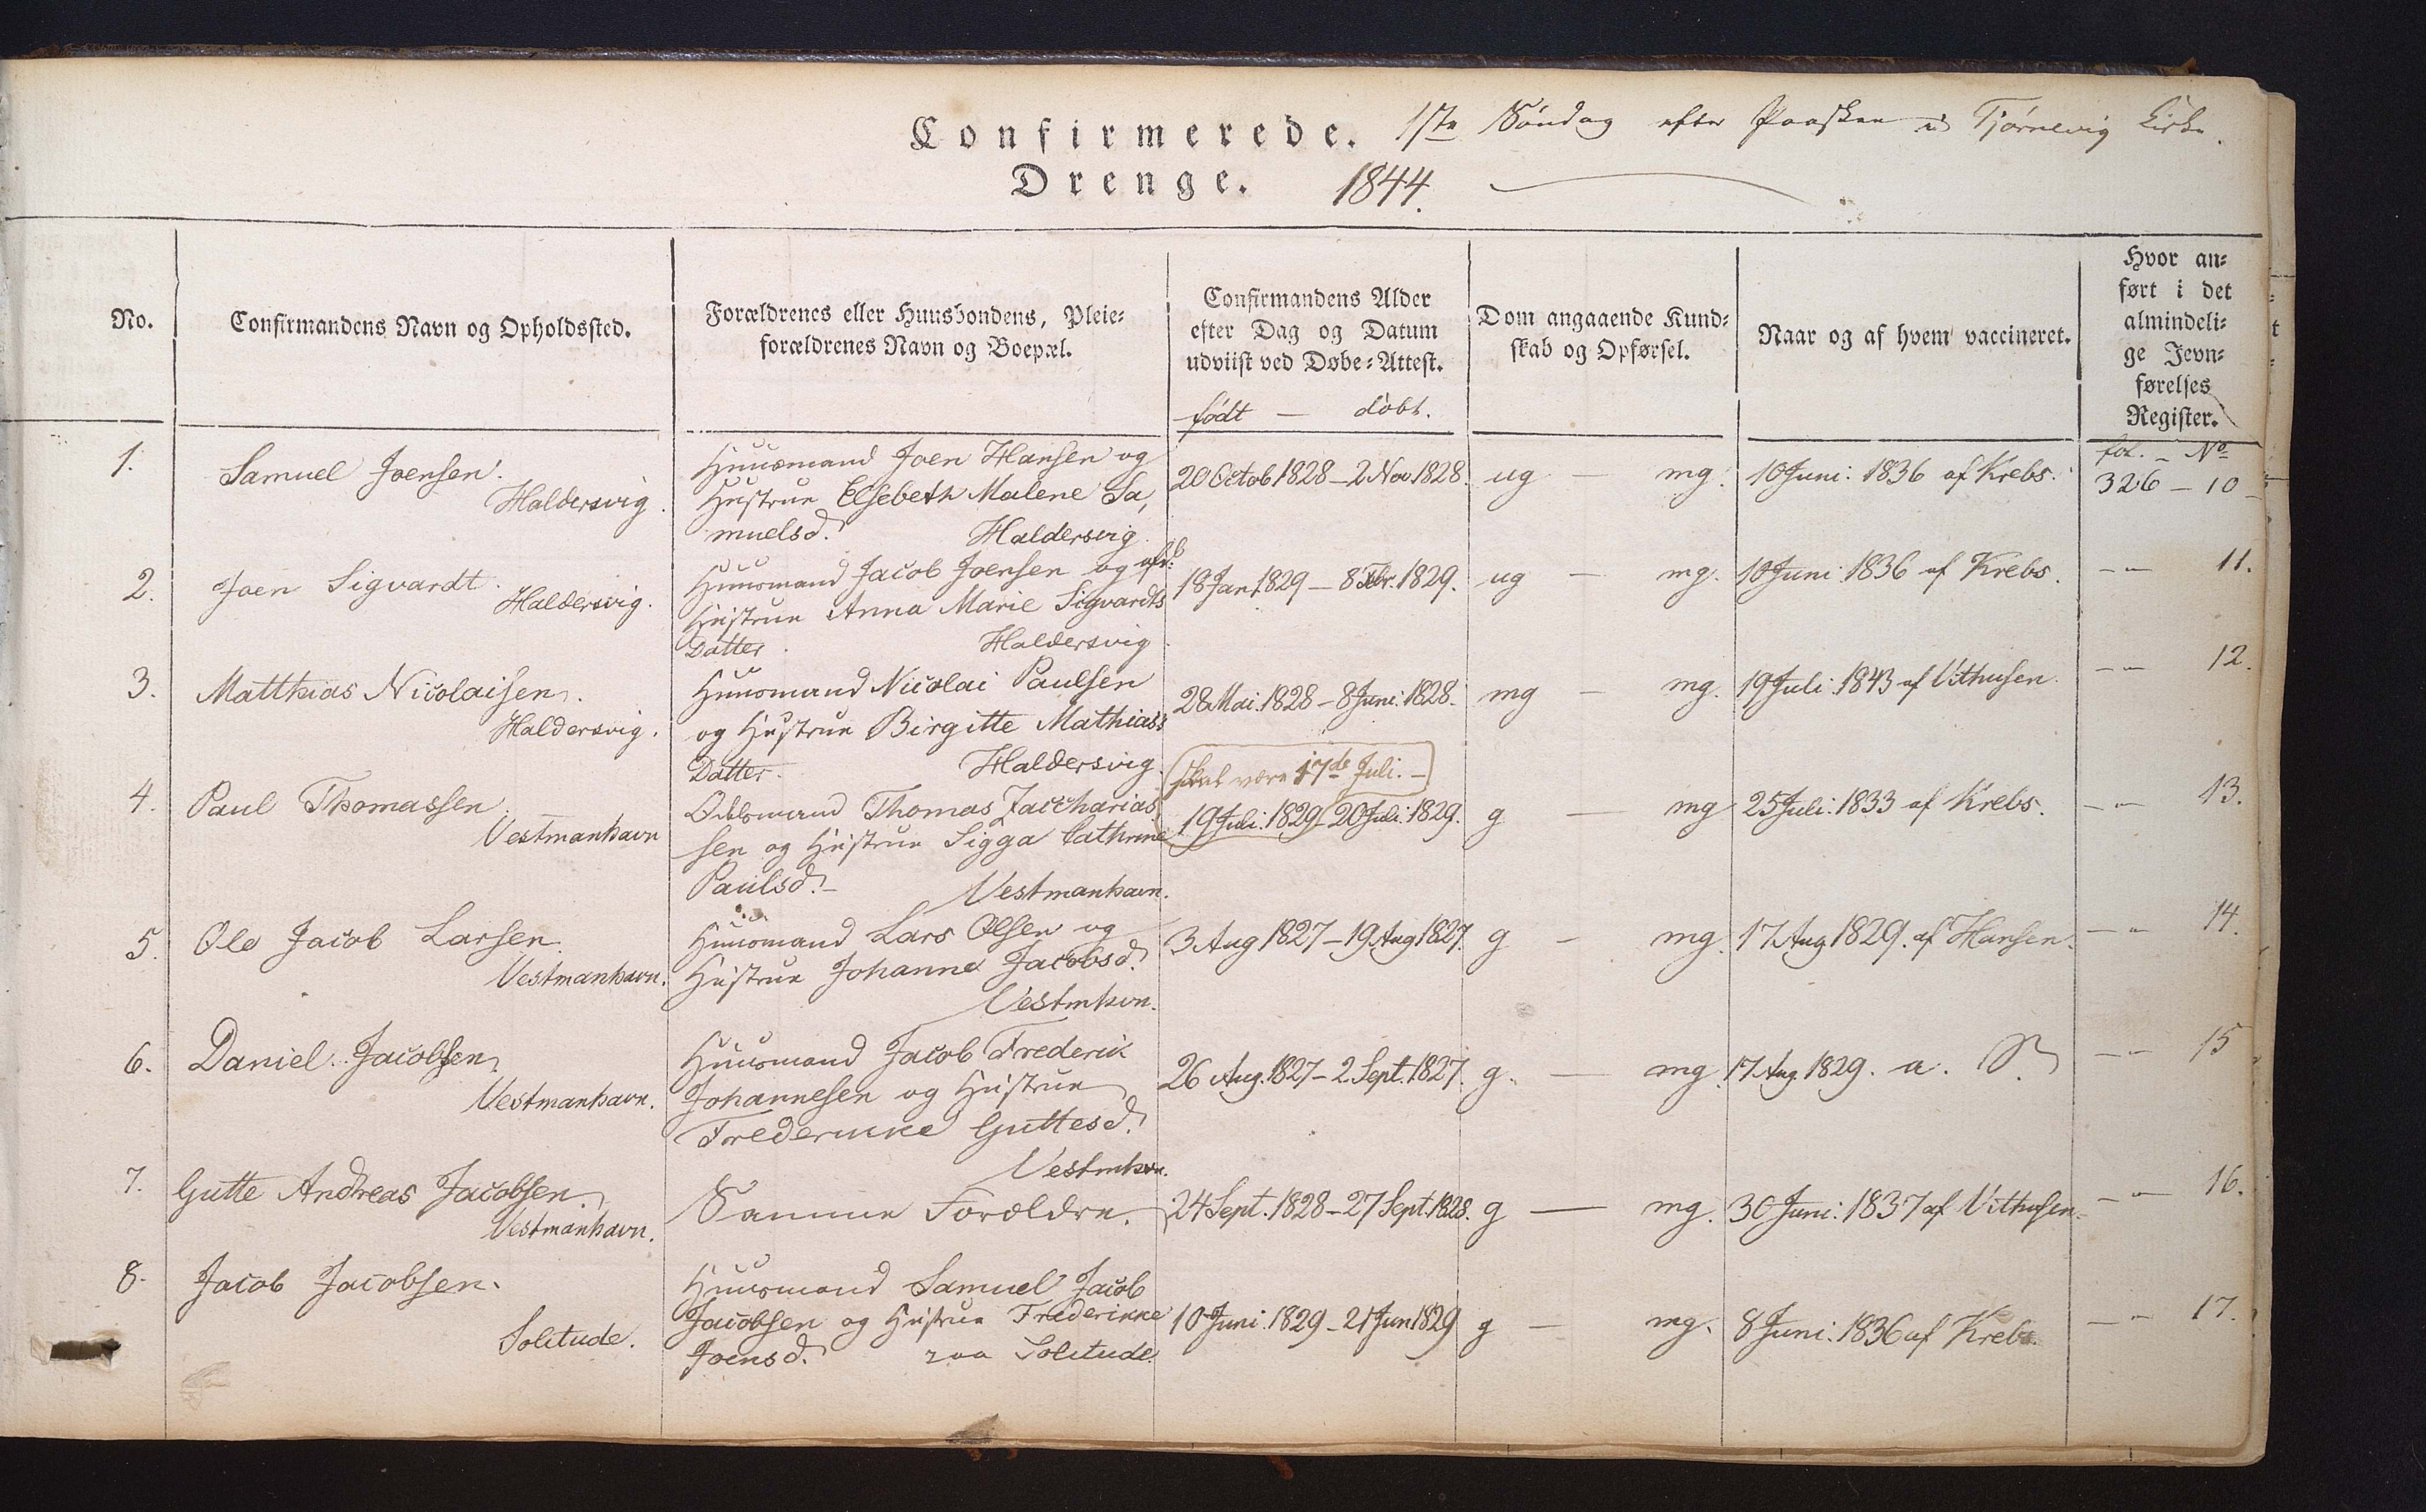 Confirmerede. 1ste Søndag efter Paasken i Tjørnevig Kirke.
Drenge. 1844.
No.
Confirmandens Navn og Opholdssted.
Forældrenes eller Huusbondens, Pleie-
forældrenes Navn og Boepæl.
Confirmandens Alder
efter Dag og Datum
udviist ved Døbe-Attest.
født — døbt.
Dom angaaende Kund-
skab og Opførsel.
Naar og af hvem vaccineret.
Hvor an-
ført i det
almindeli-
ge Jevn-
førelses
Register.
fol. - No
1.
Samuel Joensen.
Haldersvig.
Huusmand Joen Hansen og
Hustrue Elsebeth Malene Sa,
muelsd. Haldersvig.
20 Octob 1828 — 2 Nov 1828.
ug — mg.
10 Juni: 1836 af Krebs.
326 — 10 -
2.
Joen Sigvardt.
Haldersvig.
Huusmand Jacob Joensen og afd:
Hustrue Anna Marie Sigvardts
Datter. Haldersvig.
18 Jan 1829 — 8 Febr. 1829.
ug — mg.
10 Juni 1836 af Krebs.
— " — 11.
3.
Matthias Nicolaisen.
Haldersvig.
Huusmand Nicolai Paulsen
og Hustrue Birgitte Mathias:
Datter. Haldersvig.
28 Mai. 1828 — 8 Juni. 1828.
mg — mg.
19 Juli. 1843 af Vithusen.
— " — 12.
4.
Paul Thomassen.
Vestmanhavn
Odelsmand Thomas Zaccharias
sen og Hustrue Sigga Cathrine
Paulsd. — Vestmanhavn.
skal være 17de Juli. —
19 Juli. 1829 — 20 Juli. 1829.
g — mg
25 Juli. 1833 af Krebs.
— " — 13.
5.
Ole Jacob Larsen.
Vestmanhavn.
Huusmand Lars Olsen og
Hustrue Johanne Jacobsd.
Vestmhvn.
3 Aug 1827 — 19 Aug 1827.
g — mg.
17 Aug 1829. af Hansen.
— " — 14.
6.
Daniel Jacobsen
Vestmanhavn.
Huusmand Jacob Frederik
Johannesen og Hustrue
Frederikke Guttesd.
Vestmhvn.
26 Aug. 1827 — 2 Sept. 1827.
g. — mg.
17 Aug 1829. a.
— " — 15
7.
Gutte Andreas Jacobsen
Vestmanhavn.
Samme Forældre.
24 Sept. 1828 — 27 Sept. 1828.
g — mg.
30 Juni: 1837 af Vithusen.
— " — 16.
8.
Jacob Jacobsen.
Solitude.
Huusmand Samuel Jacob
Jacobsen og Hustrue Frederikke
Joensd. paa Solitude.
10 Juni. 1829 — 21 Jun 1829
g — mg.
8 Juni. 1836 af Krebs.
— " — 17.